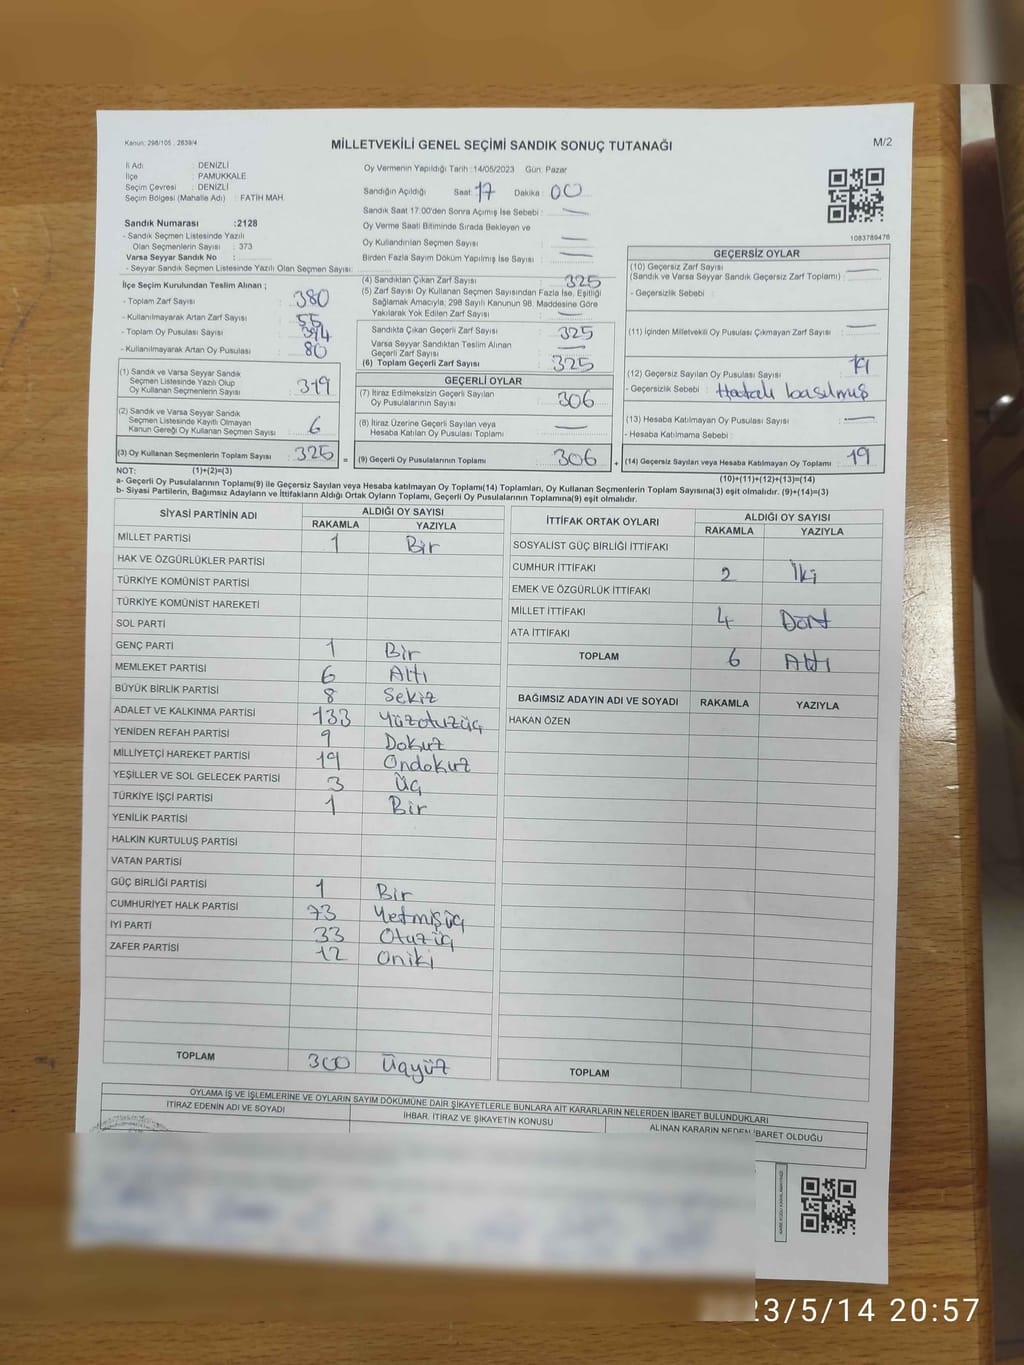 Kanun: 298/105 , 2839/4
MİLLETVEKİLİ GENEL SEÇİMİ SANDIK SONUÇ TUTANAĞI
M/2
İli Adı : DENİZLİ
İlçe : PAMUKKALE
Seçim Çevresi : DENİZLİ
Seçim Bölgesi (Mahalle Adı) : FATİH MAH.
Sandık Numarası :2128
- Sandık Seçmen Listesinde Yazılı
Olan Seçmenlerin Sayısı : 373
Varsa Seyyar Sandık No :
- Seyyar Sandık Seçmen Listesinde Yazılı Olan Seçmen Sayısı:
Oy Vermenin Yapıldığı Tarih :14/05/2023 Gün: Pazar
Sandığın Açıldığı Saat: 17 Dakika : 00
Sandık Saat 17:00'den Sonra Açılmış İse Sebebi : —
Oy Verme Saati Bitiminde Sırada Bekleyen ve
Oy Kullandırılan Seçmen Sayısı : —
Birden Fazla Sayım Döküm Yapılmış İse Sayısı : —
1083789476
İlçe Seçim Kurulundan Teslim Alınan ;
- Toplam Zarf Sayısı : 380
- Kullanılmayarak Artan Zarf Sayısı : 55
- Toplam Oy Pusulası Sayısı : 394
- Kullanılmayarak Artan Oy Pusulası : 80
(1) Sandık ve Varsa Seyyar Sandık
Seçmen Listesinde Yazılı Olup
Oy Kullanan Seçmenlerin Sayısı : 319
(2) Sandık ve Varsa Seyyar Sandık
Seçmen Listesinde Kayıtlı Olmayan
Kanun Gereği Oy Kullanan Seçmen Sayısı : 6
(3) Oy Kullanan Seçmenlerin Toplam Sayısı : 325
(4) Sandıktan Çıkan Zarf Sayısı : 325
(5) Zarf Sayısı Oy Kullanan Seçmen Sayısından Fazla İse, Eşitliği
Sağlamak Amacıyla; 298 Sayılı Kanunun 98. Maddesine Göre
Yakılarak Yok Edilen Zarf Sayısı : —
Sandıkta Çıkan Geçerli Zarf Sayısı : 325
Varsa Seyyar Sandıktan Teslim Alınan
Geçerli Zarf Sayısı : —
(6) Toplam Geçerli Zarf Sayısı : 325
GEÇERLİ OYLAR
(7) İtiraz Edilmeksizin Geçerli Sayılan
Oy Pusulalarının Sayısı : 306
(8) İtiraz Üzerine Geçerli Sayılan veya
Hesaba Katılan Oy Pusulası Toplamı : —
= (9) Geçerli Oy Pusulalarının Toplamı : 306
GEÇERSİZ OYLAR
(10) Geçersiz Zarf Sayısı : —
(Sandık ve Varsa Seyyar Sandık Geçersiz Zarf Toplamı) :
- Geçersizlik Sebebi :
(11) İçinden Milletvekili Oy Pusulası Çıkmayan Zarf Sayısı : —
(12) Geçersiz Sayılan Oy Pusulası Sayısı : 19
- Geçersizlik Sebebi : Hatalı basılmış
(13) Hesaba Katılmayan Oy Pusulası Sayısı : —
- Hesaba Katılmama Sebebi :
+ (14) Geçersiz Sayılan veya Hesaba Katılmayan Oy Toplamı : 19
NOT: (1)+(2)=(3)
(10)+(11)+(12)+(13)=(14)
a- Geçerli Oy Pusulalarının Toplamı(9) ile Geçersiz Sayılan veya Hesaba katılmayan Oy Toplamı(14) Toplamları, Oy Kullanan Seçmenlerin Toplam Sayısına(3) eşit olmalıdır. (9)+(14)=(3)
b- Siyasi Partilerin, Bağımsız Adayların ve İttifakların Aldığı Ortak Oyların Toplamı, Geçerli Oy Pusulalarının Toplamına(9) eşit olmalıdır.
SİYASİ PARTİNİN ADI ALDIĞI OY SAYISI
RAKAMLA YAZIYLA
MİLLET PARTİSİ 1 Bir
HAK VE ÖZGÜRLÜKLER PARTİSİ
TÜRKİYE KOMÜNİST PARTİSİ
TÜRKİYE KOMÜNİST HAREKETİ
SOL PARTİ
GENÇ PARTİ 1 Bir
MEMLEKET PARTİSİ 6 Altı
BÜYÜK BİRLİK PARTİSİ 8 Sekiz
ADALET VE KALKINMA PARTİSİ 133 Yüzotuzüç
YENİDEN REFAH PARTİSİ 9 Dokuz
MİLLİYETÇİ HAREKET PARTİSİ 19 Ondokuz
YEŞİLLER VE SOL GELECEK PARTİSİ 3 Üç
TÜRKİYE İŞÇİ PARTİSİ 1 Bir
YENİLİK PARTİSİ
HALKIN KURTULUŞ PARTİSİ
VATAN PARTİSİ
GÜÇ BİRLİĞİ PARTİSİ 1 Bir
CUMHURİYET HALK PARTİSİ 73 Yetmişüç
İYİ PARTİ 33 Otuzüç
ZAFER PARTİSİ 12 Oniki
TOPLAM 300 Üçyüz
İTTİFAK ORTAK OYLARI ALDIĞI OY SAYISI
RAKAMLA YAZIYLA
SOSYALİST GÜÇ BİRLİĞİ İTTİFAKI
CUMHUR İTTİFAKI 2 İki
EMEK VE ÖZGÜRLÜK İTTİFAKI
MİLLET İTTİFAKI 4 Dört
ATA İTTİFAKI
TOPLAM 6 Altı
BAĞIMSIZ ADAYIN ADI VE SOYADI RAKAMLA YAZIYLA
HAKAN ÖZEN
TOPLAM
OYLAMA İŞ VE İŞLEMLERİNE VE OYLARIN SAYIM DÖKÜMÜNE DAİR ŞİKAYETLERLE BUNLARA AİT KARARLARIN NELERDEN İBARET BULUNDUKLARI
İTİRAZ EDENİN ADI VE SOYADI İHBAR, İTİRAZ VE ŞİKAYETİN KONUSU ALINAN KARARIN NEDEN İBARET OLDUĞU
23/5/14 20:57